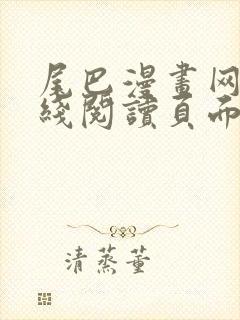 尾巴漫畫网
綫閱讀頁而
清蒸董